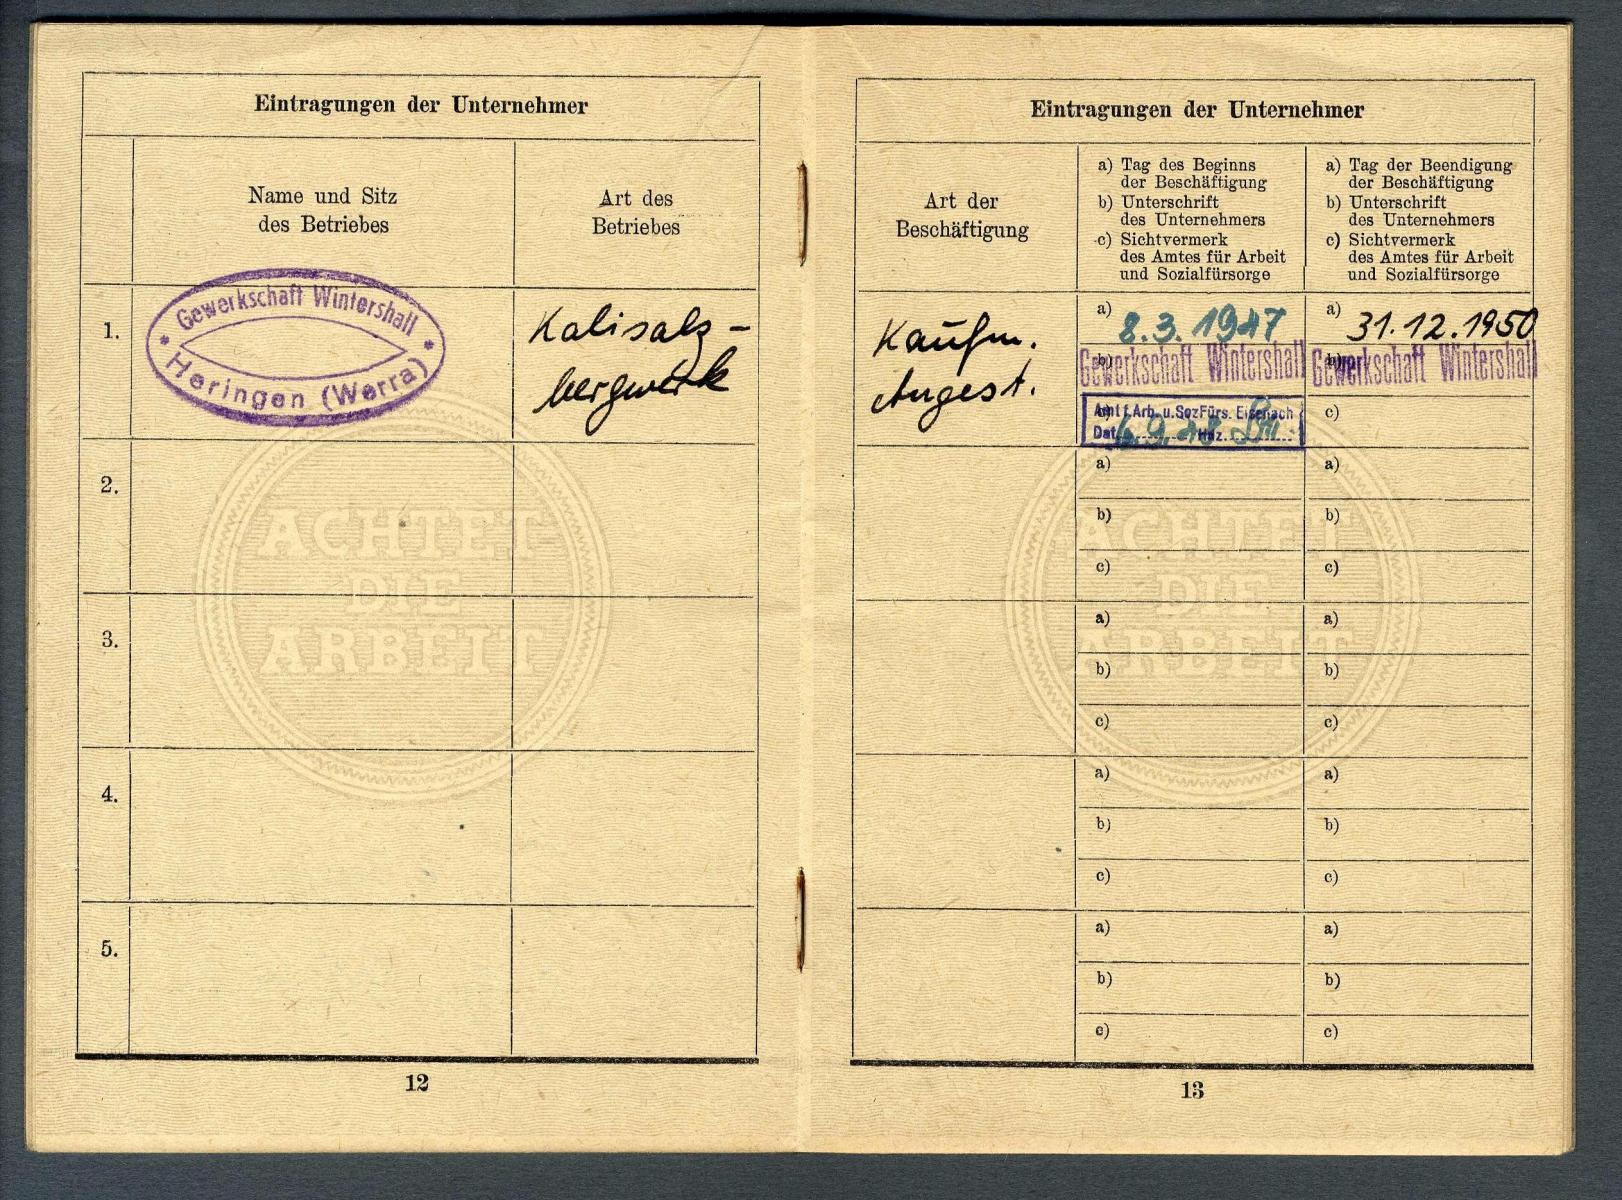 Eintragungen der Unternehmer
Name und Sitz
des Betriebes
Art des
Betriebes
1.
Gewerkschaft Wintershall
* Heringen (Werra) *
Kalisalz-
bergwerk
2.
3.
4.
5.
ACHTET
DIE
ARBEIT
12
Eintragungen der Unternehmer
Art der
Beschäftigung
a) Tag des Beginns
der Beschäftigung
b) Unterschrift
des Unternehmers
c) Sichtvermerk
des Amtes für Arbeit
und Sozialfürsorge
a) Tag der Beendigung
der Beschäftigung
b) Unterschrift
des Unternehmers
c) Sichtvermerk
des Amtes für Arbeit
und Sozialfürsorge
Kaufm.
Angest.
a) 8.3.1947
b) Gewerkschaft Wintershall
Amt f. Arb. u. SozFürs. Eisenach
Dat. 6.9.48 Hdz.
a) 31.12.1950
b) Gewerkschaft Wintershall
c)
a) a)
b) b)
c) c)
a) a)
b) b)
c) c)
a) a)
b) b)
c) c)
a) a)
b) b)
c) c)
ACHTET
DIE
ARBEIT
13